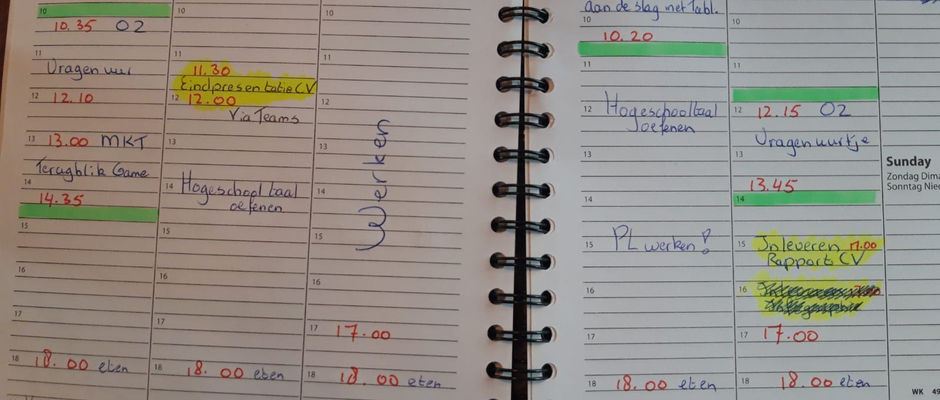 10
10.35 O2
11
Vragenuur
12 12.10
13 13.00 MKT
Terugblik Game
14
14.35
15
16
17
18 18.00 eten
10
11
11.30
Eindpresentatie CV
12 12.00
Via Teams
13
14 Hogeschooltaal
oefenen
15
16
17
18 18.00 eten
10
11
12
13
Werken
14
15
16
17 17.00
18 18.00 eten
aan de slag met Tabl.
10
10.20
11
12 Hogeschooltaal
oefenen
13
14
15 PL werken!
16
17
18 18.00 eten
10
11
12 12.15 O2
Vragenuurtje
13
13.45
14
15 Inleveren 17.00
Rapport CV
16
17 17.00
18 18.00 eten
Sunday
Zondag Dima
Sonntag Nie
WK 49